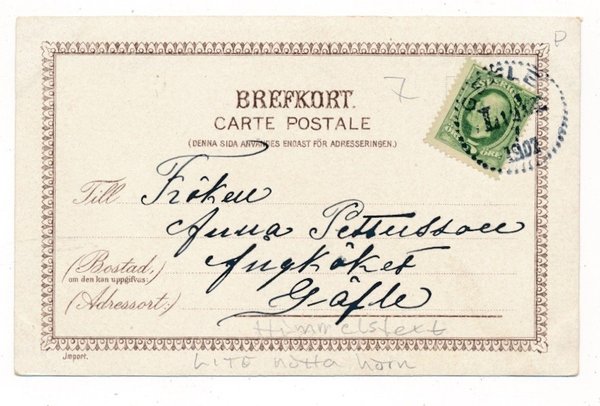 BREFKORT.
CARTE POSTALE
(DENNA SIDA ANVÄNDES ENDAST FÖR ADRESSERINGEN.)
Till Fröken
Anna Pettersson
(Bostad,) Ångköket
om den kan uppgifvas:
(Adressort:) Gäfle
Himmelstext
LITE nötta hörn
Import.
GEFLE
L
1907
7